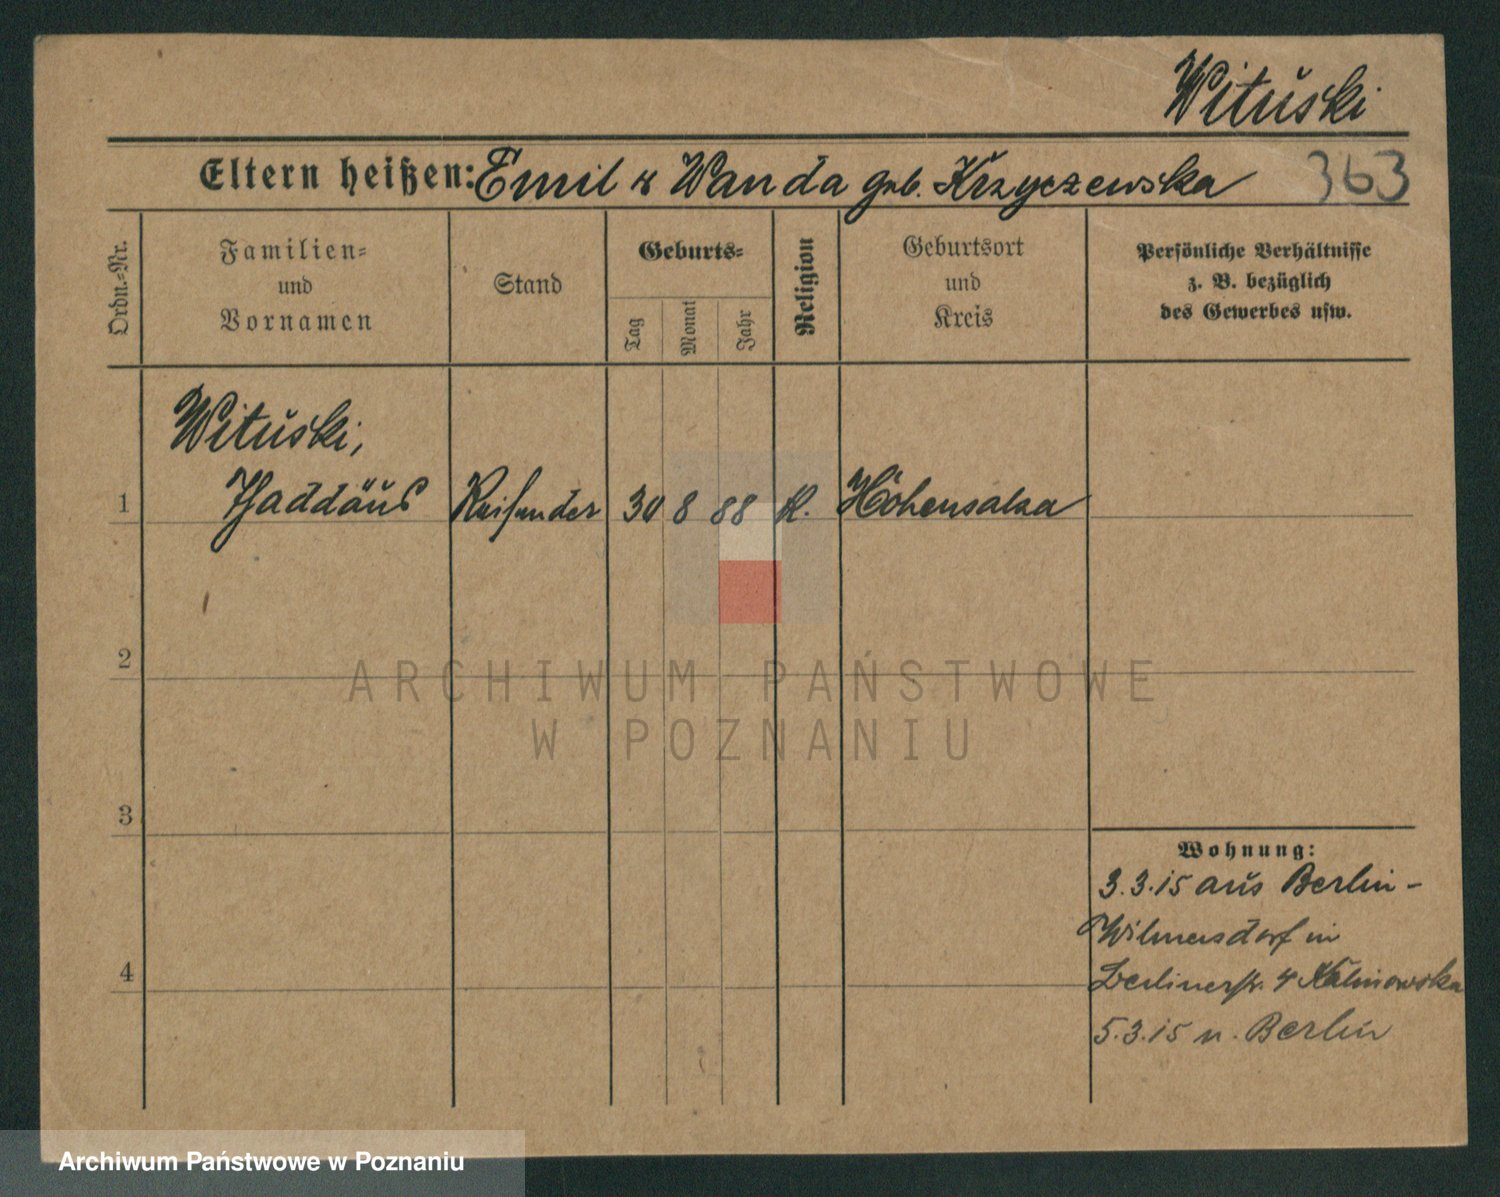 Wituski
Eltern heißen: Emil & Wanda geb. Krzyczewska
363
Ordn.-Nr.
Familien-
und
Vornamen
Stand
Geburts-
Tag
Monat
Jahr
Religion
Geburtsort
und
Kreis
Persönliche Verhältnisse
z. B. bezüglich
des Gewerbes usw.
Wituski,
1 Thaddäus Reisender 30 8 88 k. Hohensalza
2
3
4
Wohnung:
3.3.15 aus Berlin-
Wilmersdorf in
Berlinerstr. 4 Kalinowska
5.3.15 n. Berlin
ARCHIWUM PAŃSTWOWE
W POZNANIU
Archiwum Państwowe w Poznaniu